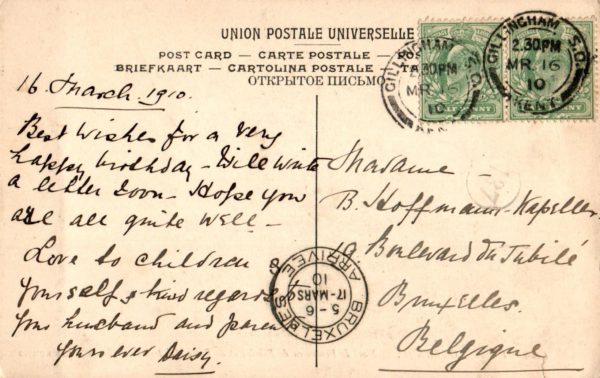 UNION POSTALE UNIVERSELLE
POST CARD — CARTE POSTALE —
BRIEFKAART — CARTOLINA POSTALE —
ОТКРЫТОЕ ПИСЬМО
GILLINGHAM
2.30PM
MR 16
10
KENT
GILLINGHAM S.O.
2.30PM
MR 16
10
KENT
16 March 1910.
Best wishes for a very
happy birthday — Will write
a letter soon — Hope you
are all quite well —
Love to children
yourself & kind regards
your husband and
yours ever Daisy.
Madame —
B. Hoffmann-Kapeller
19 Boulevard du Jubilé
Bruxelles.
Belgique
BRUXELLES
ARRIVEE
5-6
17-MARS
10